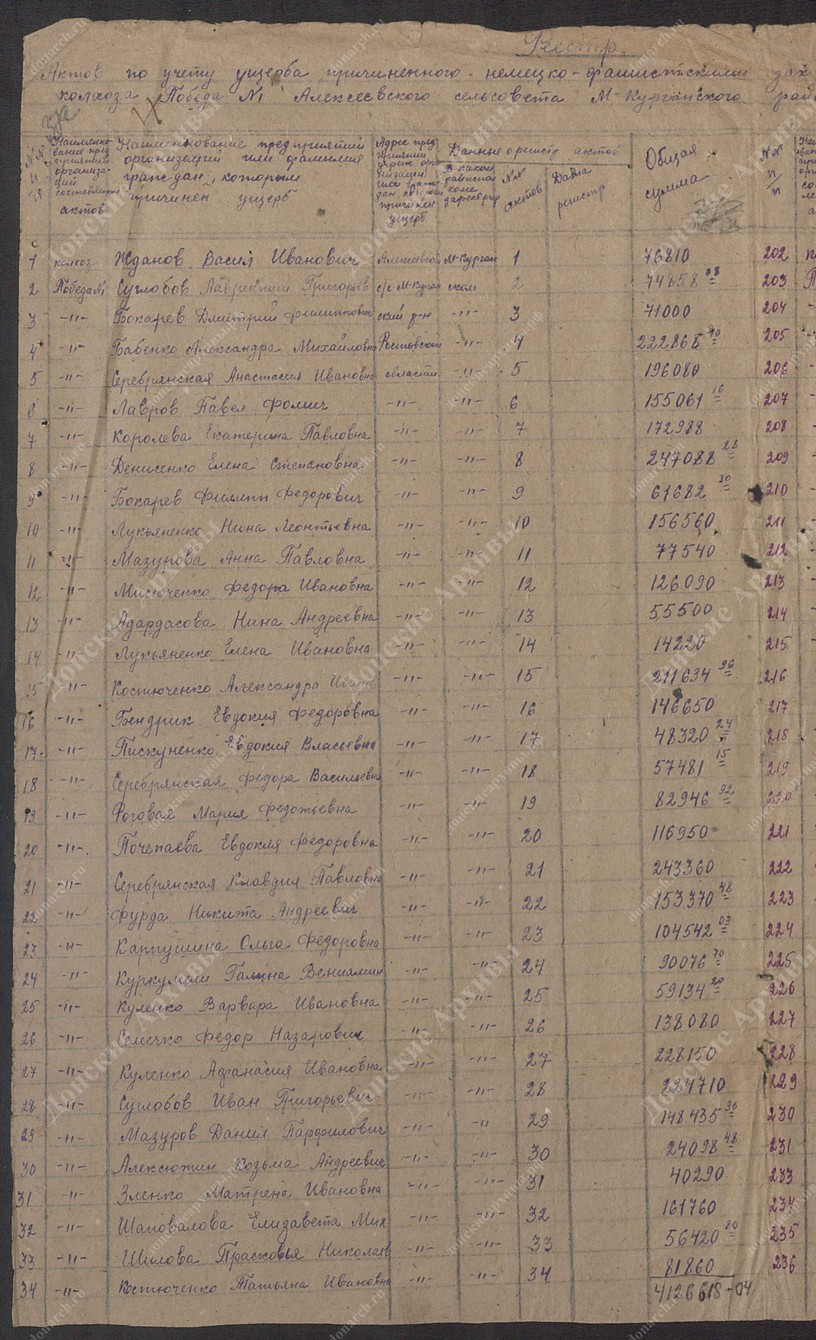 Реестр
Актов по учету ущерба причиненного немецко-фашистскими зах
колхоза Победа №1 Алексеевского сельсовета М-Курганского рай
№№ п/п
Наименование предприятий организаций составивших актов
Наименование предприятий организаций или фамилия граждан, которым причинен ущерб
Адрес ущерб
Данные регистр актов
№№ актов
Дата регистр
Общая сумма
№№ п/п
1 колхоз Жданов Васил Иванович Алексеевский М-Курган 1 76810 202
2 Победа №1 Суглобов Лаврентий Григорьев с/с М-Курган ском 2 74858 08 203
3 -"- Бокарев Дмитрий Филиппович ский р-н -"- 3 71000 204
4 -"- Бабенко Александра Михайловн Ростовской -"- 4 222868 40 205
5 -"- Серебрянская Анастасия Ивановна области -"- 5 196080 206
6 -"- Лавров Павел Фомич -"- -"- 6 155061 16 207
7 -"- Королева Екатерина Павловна -"- -"- 7 172988 208
8 -"- Денисенко Елена Степановна -"- -"- 8 247088 28 209
9 -"- Бокарев Филипп Федорович -"- -"- 9 61682 20 210
10 -"- Лукьяненко Нина Леонтьевна -"- -"- 10 156560 211
11 -"- Мазурова Анна Павловна -"- -"- 11 77540 212
12 -"- Мисюченко Федора Ивановна -"- -"- 12 126090 213
13 -"- Адардасова Нина Андреевна -"- -"- 13 55500 214
14 -"- Лукьяненко Елена Ивановна -"- -"- 14 14220 215
15 -"- Костюченко Александра Иванов -"- -"- 15 211634 96 216
16 -"- Бендрик Евдокия Федоровна -"- -"- 16 146650 217
17 -"- Пискуненко Евдокия Власовна -"- -"- 17 48320 24 218
18 -"- Серебрянская Федора Васильевна -"- -"- 18 57481 15 219
19 -"- Роговая Мария Федотьевна -"- -"- 19 82946 92 220
20 -"- Почепаева Евдокия Федоровна -"- -"- 20 116950 221
21 -"- Серебрянская Клавдия Павловна -"- -"- 21 243360 222
22 -"- Фурда Никита Андреевич -"- -"- 22 153370 48 223
23 -"- Карпушина Ольга Федоровна -"- -"- 23 104542 03 224
24 -"- Куркумели Галина Вениамин -"- -"- 24 90076 70 225
25 -"- Куленко Варвара Ивановна -"- -"- 25 59134 20 226
26 -"- Семечко Федор Назарович -"- -"- 26 138080 227
27 -"- Куленко Афанасия Ивановна -"- -"- 27 228150 228
28 -"- Суглобов Иван Григорьевич -"- -"- 28 224710 229
29 -"- Мазуров Данил Парфилович -"- -"- 29 148435 36 230
30 -"- Алексюткин Козьма Андреевич -"- -"- 30 24098 48 231
31 -"- Зленко Матрена Ивановна -"- -"- 31 40290 233
32 -"- Шаповалова Елизавета Мих -"- -"- 32 161760 234
33 -"- Шилова Прасковья Николаев -"- -"- 33 56420 20 235
34 -"- Костюченко Татьяна Ивановна -"- -"- 34 81860 236
4126618-04